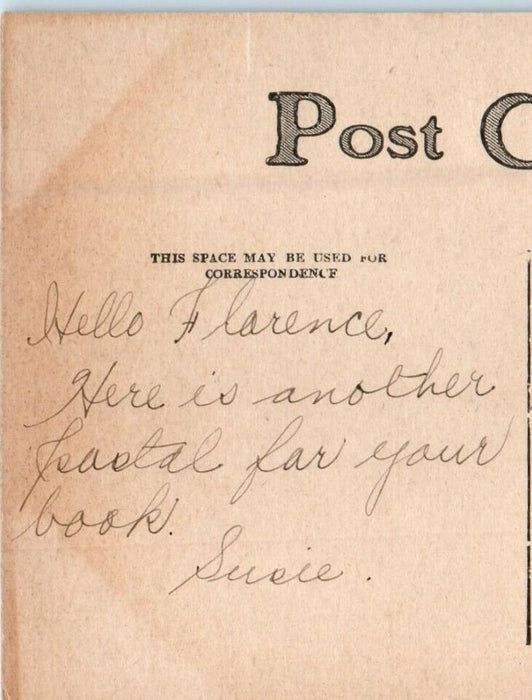 Post C
THIS SPACE MAY BE USED FOR
CORRESPONDENCE
Hello Florence,
Here is another
postal for your
book.
Susie.